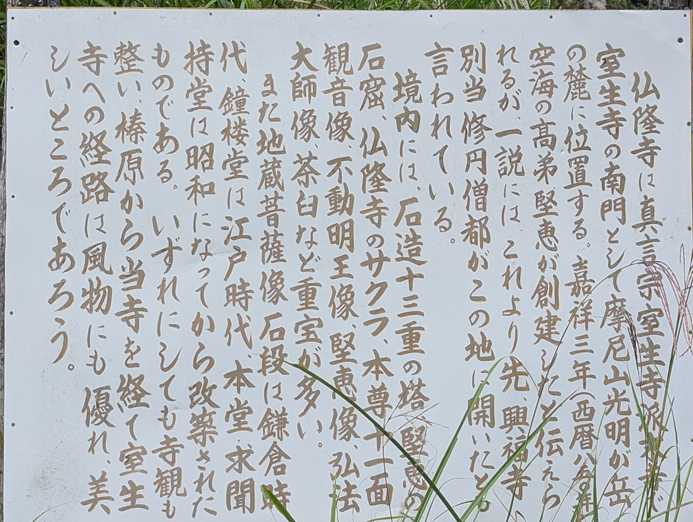 仏隆寺は真言宗室生寺派
室生寺の南門として摩尼山光明が岳
の麓に位置する。嘉祥三年(西暦八
空海の高弟堅恵が創建したと伝えら
れるが、一説には これより先、興福寺
別当修円僧都がこの地に開いたとも
言われている。
境内には、石造十三重の塔、堅恵の
石窟、仏隆寺のサクラ、本尊十一面
観音像、不動明王像、堅恵像、弘法
大師像、茶臼など重宝が多い。
また地蔵菩薩像、石段は鎌倉時
代、鐘楼堂は江戸時代、本堂、求聞
持堂は昭和になってから改築された
ものである。いずれにしても寺観も
整い、榛原から当寺を経て室生
寺への経路は風物にも優れ、美
しいところであろう。